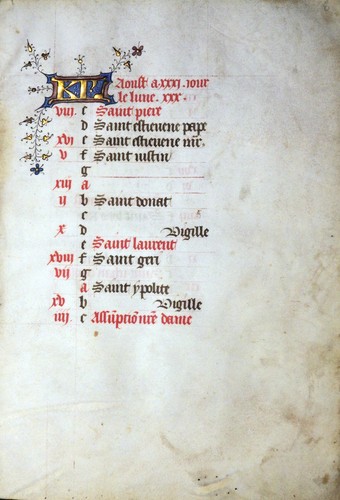 KL Aoust a. xxxi. iour
le lune. xxx.
viii. c Saint piere
d Saint estievene pape
xvi e Saint estievene mr̄e.
v f Saint iustin
g
xiii a
ii b Saint donat
c
x d Vigille
e Saint laurent
xviii f Saint geri
vii g
a Saint ypolite
xv b Vigille
iiii. c Assūptiō nr̄e dame